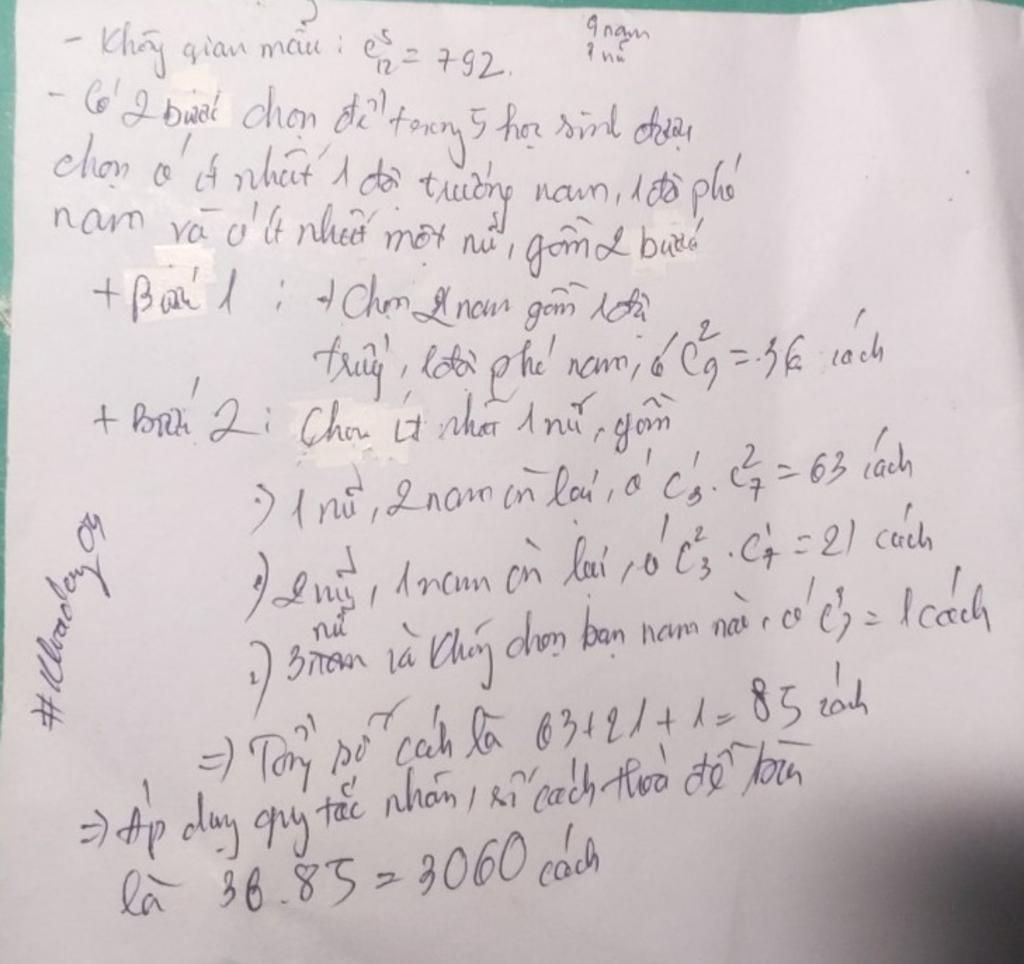 - Không gian mẫu : C⁵₁₂ = 792.
9 nam
3 nữ
- Có 2 bước chọn để trong 5 học sinh được
chọn có ít nhất 1 đội trưởng nam, 1 đội phó
nam và có ít nhất một nữ, gồm 2 bước
+ Bước 1 : + Chọn 2 nam gồm 1 đội
trưởng, 1 đội phó nam, có C²₉ = 36 cách
+ Bước 2 : Chọn ít nhất 1 nữ, gồm
1 nữ, 2 nam còn lại, có C¹₃ . C²₇ = 63 cách
2 nữ, 1 nam còn lại, có C²₃ . C¹₇ = 21 cách
3 nữ và không chọn bạn nam nào, có C³₃ = 1 cách
=> Tổng số cách là 63 + 21 + 1 = 85 cách
=> Áp dụng quy tắc nhân, số cách thoả đề bài
là 36 . 85 = 3060 cách